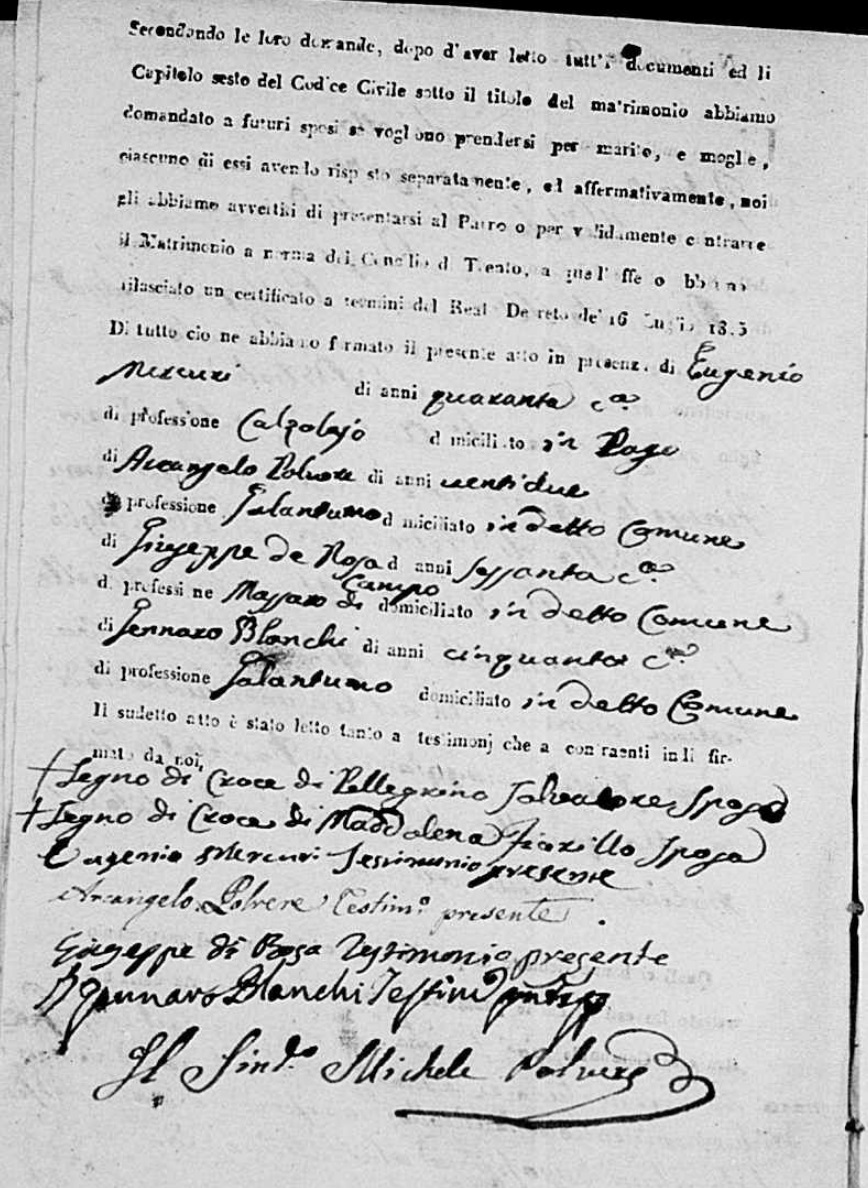 Secondando le loro domande, dopo d'aver letto tutt'i documenti ed li
Capitolo sesto del Codice Civile sotto il titolo del matrimonio abbiamo
domandato a futuri sposi se vogliono prendersi per marito, e moglie,
ciascuno di essi avendo risposto separatamente, ed affermativamente, noi
gli abbiamo avvertiti di presentarsi al Parroco per validamente contrarre
il Matrimonio a norma del Concilio di Trento, a quell'effetto abbiamo
rilasciato un certificato a termini del Real Decreto de' 16 Luglio 1815
Di tutto ciò ne abbiamo formato il presente atto in presenza di Eugenio
Mercuri di anni quaranta c.a
di professione Calzolajo domiciliato in Pago
di Arcangelo Polvere di anni ventidue
di professione Galantumo domiciliato in detto Comune
di Giuseppe de Rosa di anni sessanta c.a
di professione Massaro di Campo domiciliato in detto Comune
di Gennaro Blanchi di anni cinquanta c.a
di professione Galantumo domiciliato in detto Comune
Il sudetto atto è stato letto tanto a testimonj che a contraenti indi fir-
mato da noi,
+ Segno di Croce di Pellegrino Salvatore Sposo
+ Segno di Croce di Maddalena Fiorillo Sposa
Eugenio Mercuri Testimonio presente
Arcangelo Polvere Testim.o presente
Giuseppe di Rosa Testimonio presente
Gennaro Blanchi Testim.o
Il Sind.o Michele Polvere